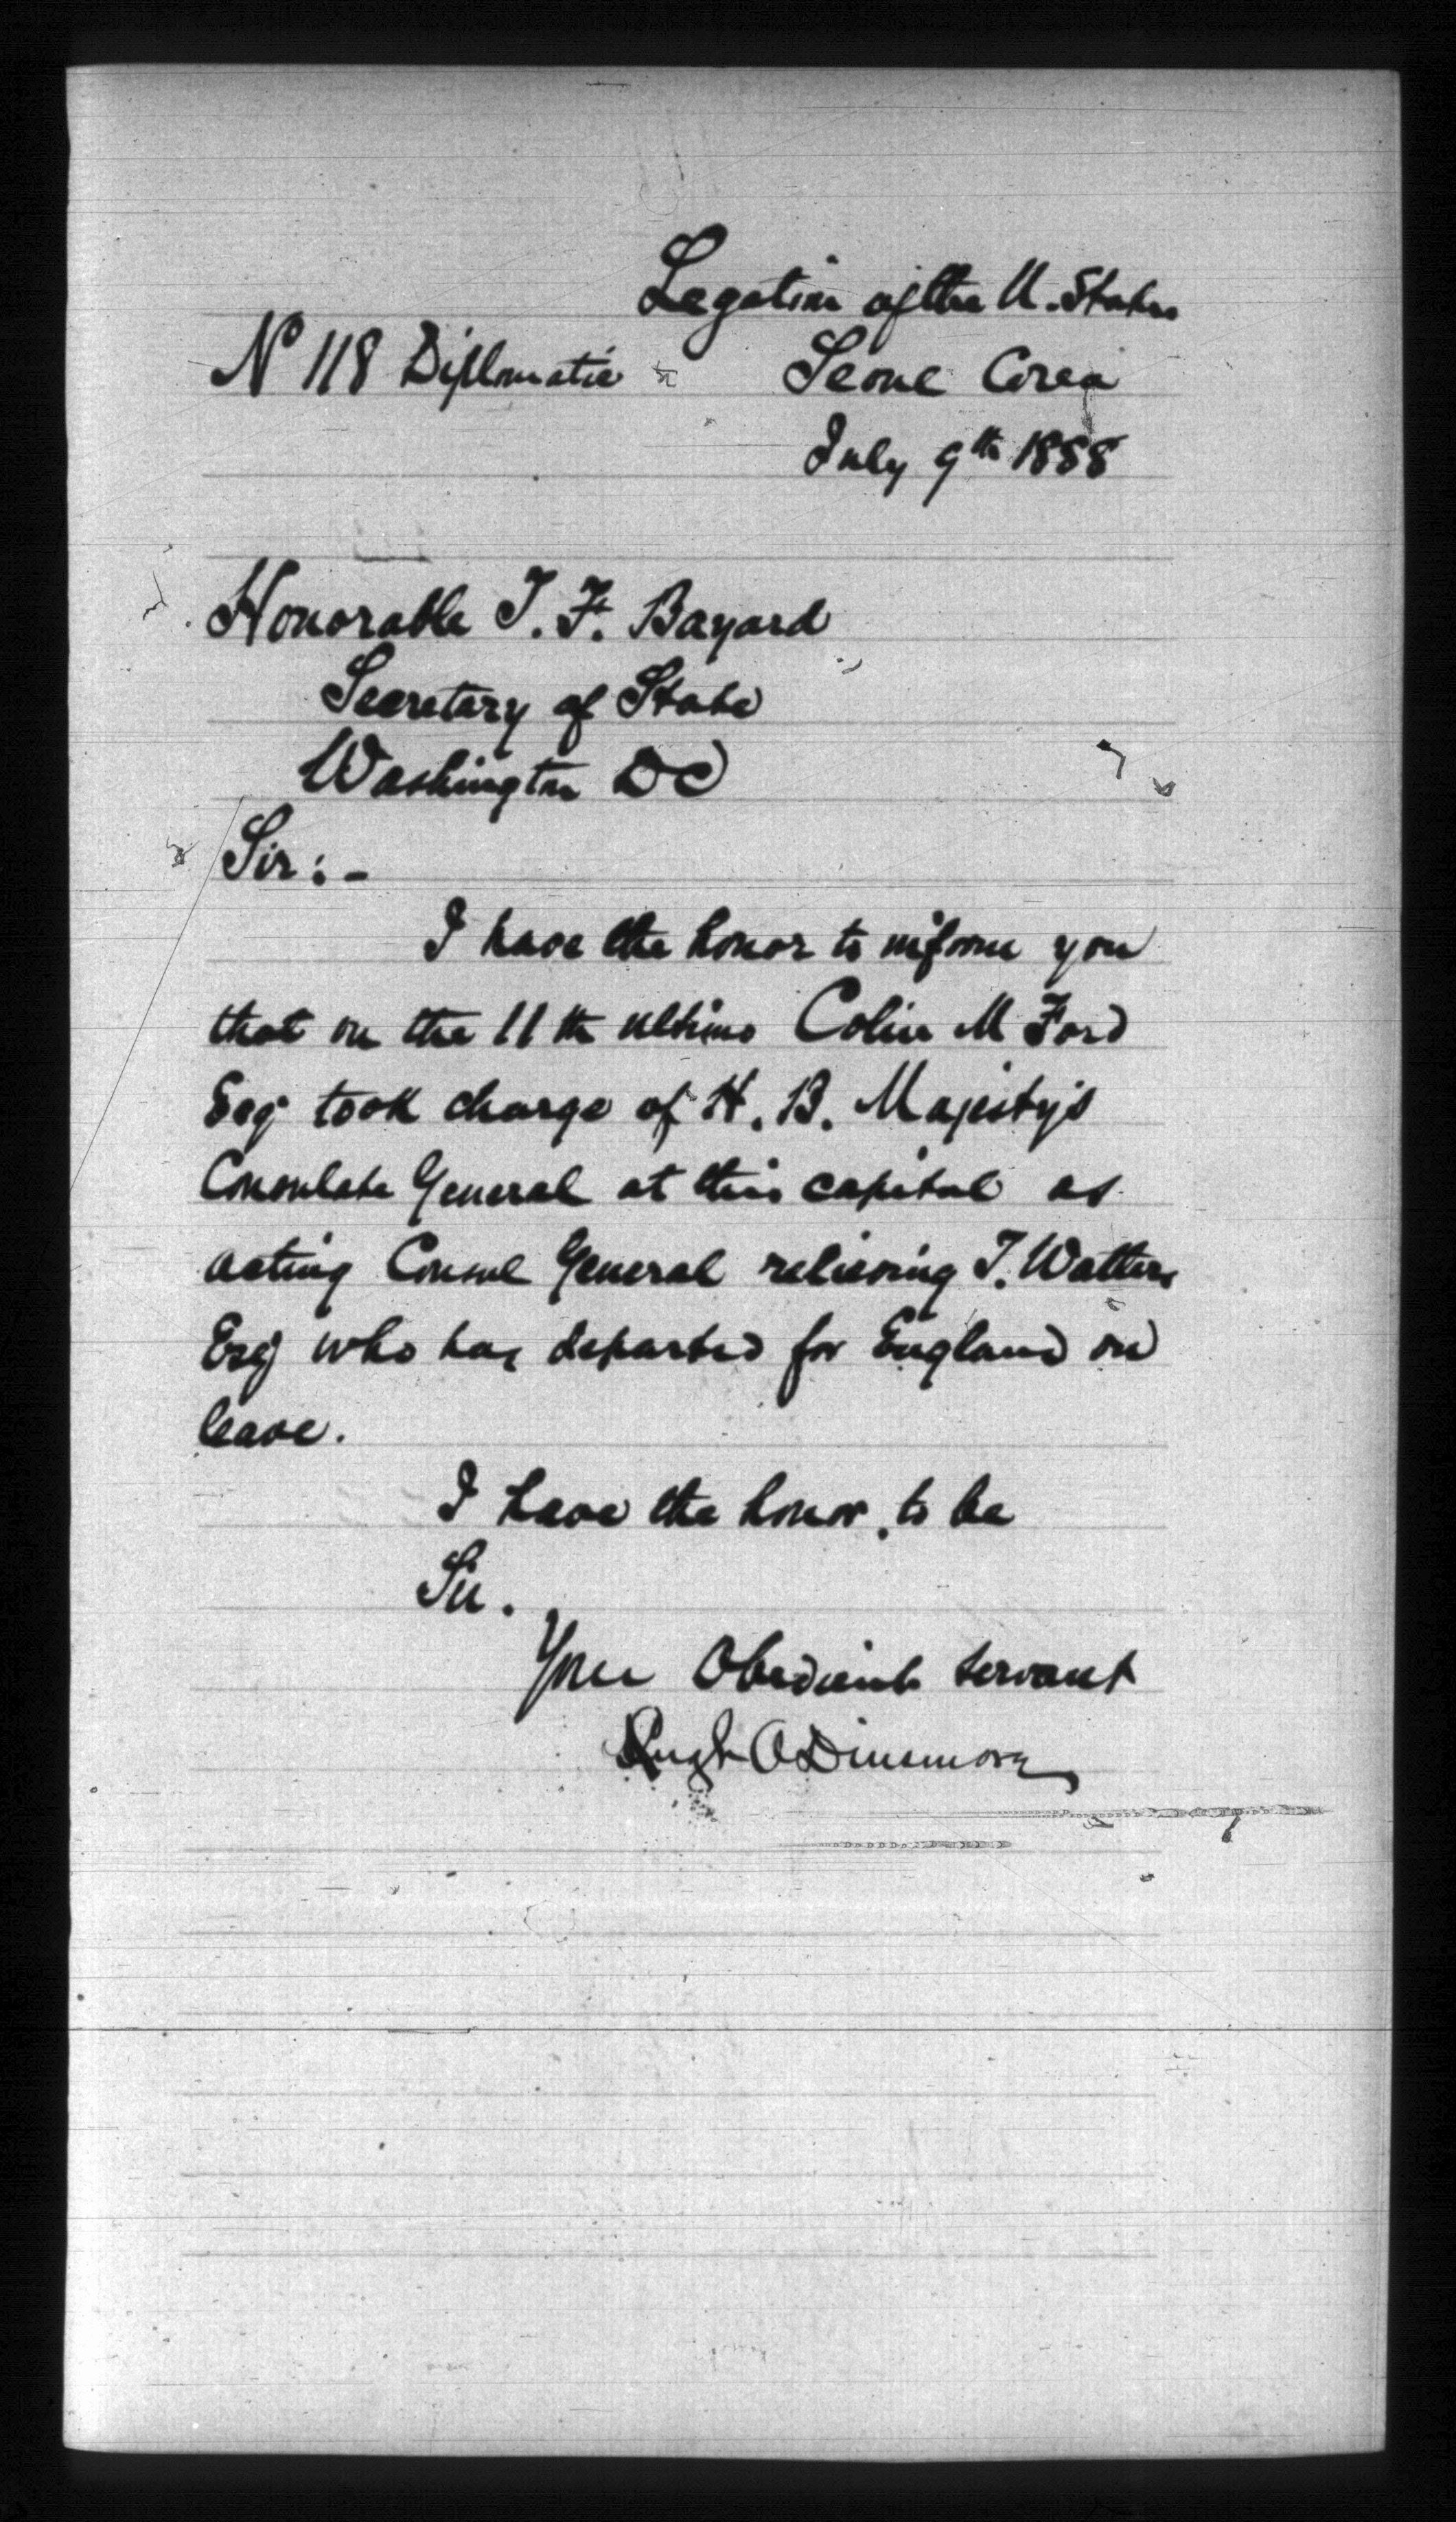 Legation of the U. States
No 118 Diplomatic Seoul Corea
July 9th 1888
Honorable T. F. Bayard
Secretary of State
Washington DC
Sir:-
I have the honor to inform you
that on the 11th ultimo Colin M Ford
Esq took charge of H. B. Majesty's
Consulate General at this capital as
acting Consul General relieving T. Watters
Esq who has departed for England on
leave.
I have the honor, to be
Sir.
Your Obedient servant
Hugh A Dinsmore